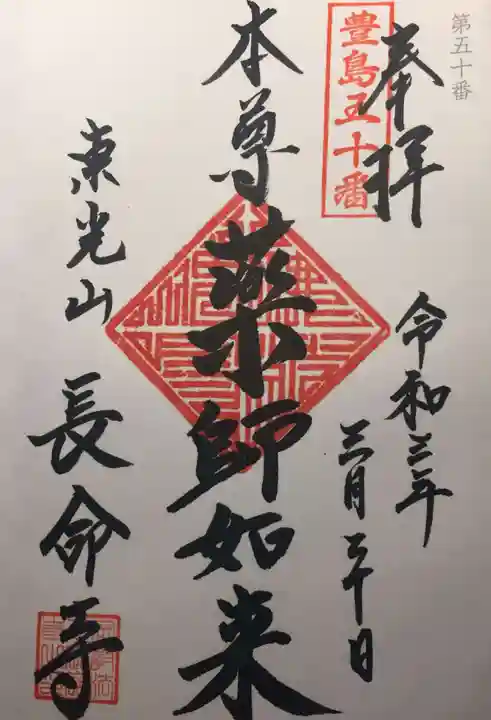 第五十番
奉拝
豊島五十番
令和三年
三月二十日
本尊薬師如来
東光山
長命寺